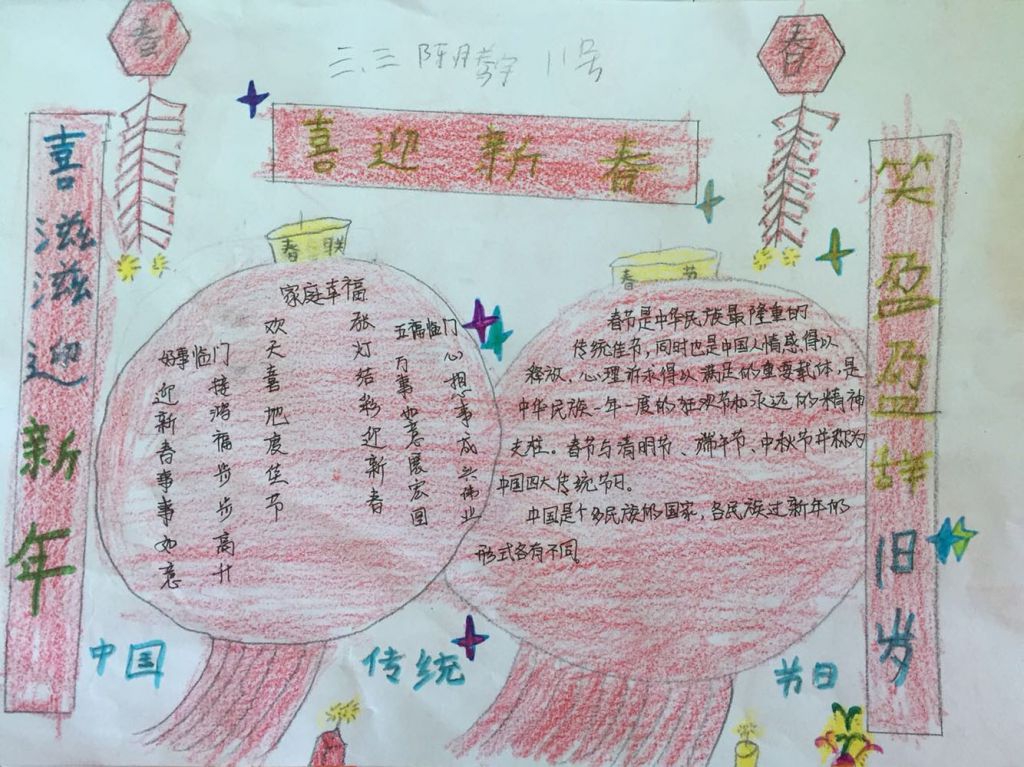 春
春
三、三 11号
喜迎新春
喜滋滋迎新年
笑盈盈辞旧岁
春联
家庭幸福
张灯结彩迎新春
欢天喜地度佳节
好事临门
接鸿福步步高升
迎新春事事如意
五福临门
心想事成兴伟业
万事如意展宏图
春节
春节是中华民族最隆重的
传统佳节,同时也是中国人情感得以
释放、心理诉求得以满足的重要载体,是
中华民族一年一度的狂欢节和永远的精神
支柱。春节与清明节、端午节、中秋节并称为
中国四大传统节日。
中国是个多民族的国家,各民族过新年的
形式各有不同。
中国
传统
节日